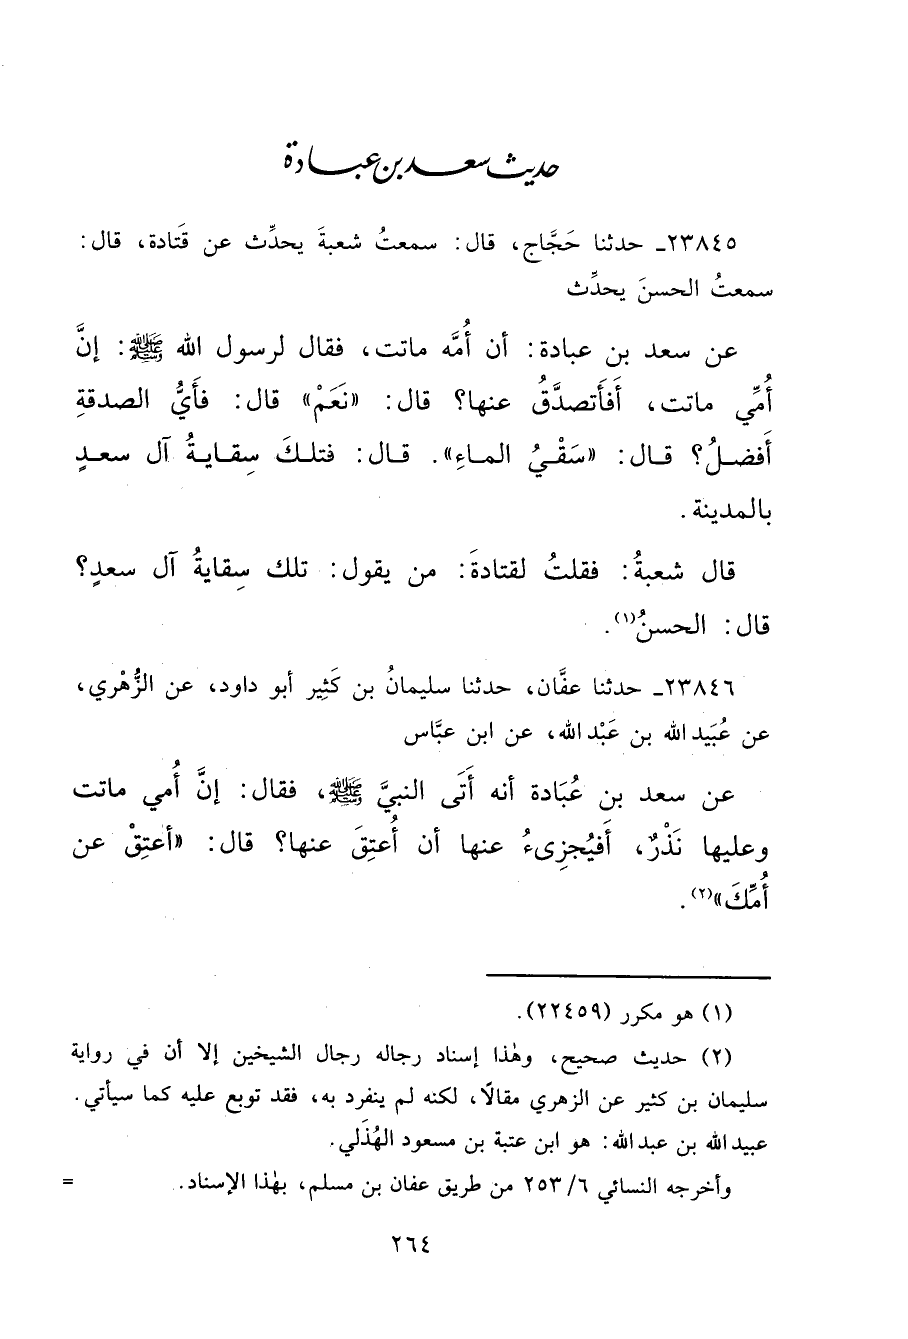 حديث سعد بن عبادة
٢٣٨٤٥ـ حدثنا حَجَّاج، قال: سمعتُ شعبةَ يحدِّث عن قَتادة، قال:
سمعتُ الحسنَ يحدِّث
عن سعد بن عبادة: أن أُمَّه ماتت، فقال لرسول الله ﷺ: إنَّ
أُمِّي ماتت، أَفَأَتصدَّقُ عنها؟ قال: «نَعَمْ» قال: فأَيُّ الصدقةِ
أَفضلُ؟ قال: «سَقْيُ الماءِ». قال: فتلكَ سِقايةُ آل سعدٍ
بالمدينة.
قال شعبةُ: فقلتُ لقتادةَ: من يقول: تلك سِقايةُ آل سعدٍ؟
قال: الحسنُ(١).
٢٣٨٤٦ـ حدثنا عفَّان، حدثنا سليمانُ بن كَثِير أبو داود، عن الزُّهْري،
عن عُبَيد الله بن عَبْد الله، عن ابن عبَّاس
عن سعد بن عُبَادة أنه أَتَى النبيَّ ﷺ، فقال: إنَّ أُمي ماتت
وعليها نَذْرٌ، أَفيُجزِىءُ عنها أن أُعتِقَ عنها؟ قال: «أعتِقْ عن
أُمِّكَ»(٢).
(١) هو مكرر (٢٢٤٥٩).
(٢) حديث صحيح، وهٰذا إسناد رجاله رجال الشيخين إلا أن في رواية
سليمان بن كثير عن الزهري مقالًا، لكنه لم ينفرد به، فقد توبع عليه كما سيأتي.
عبيد الله بن عبد الله: هو ابن عتبة بن مسعود الهُذَلي.
وأخرجه النسائي ٢٥٣/٦ من طريق عفان بن مسلم، بهٰذا الإسناد. =
٢٦٤